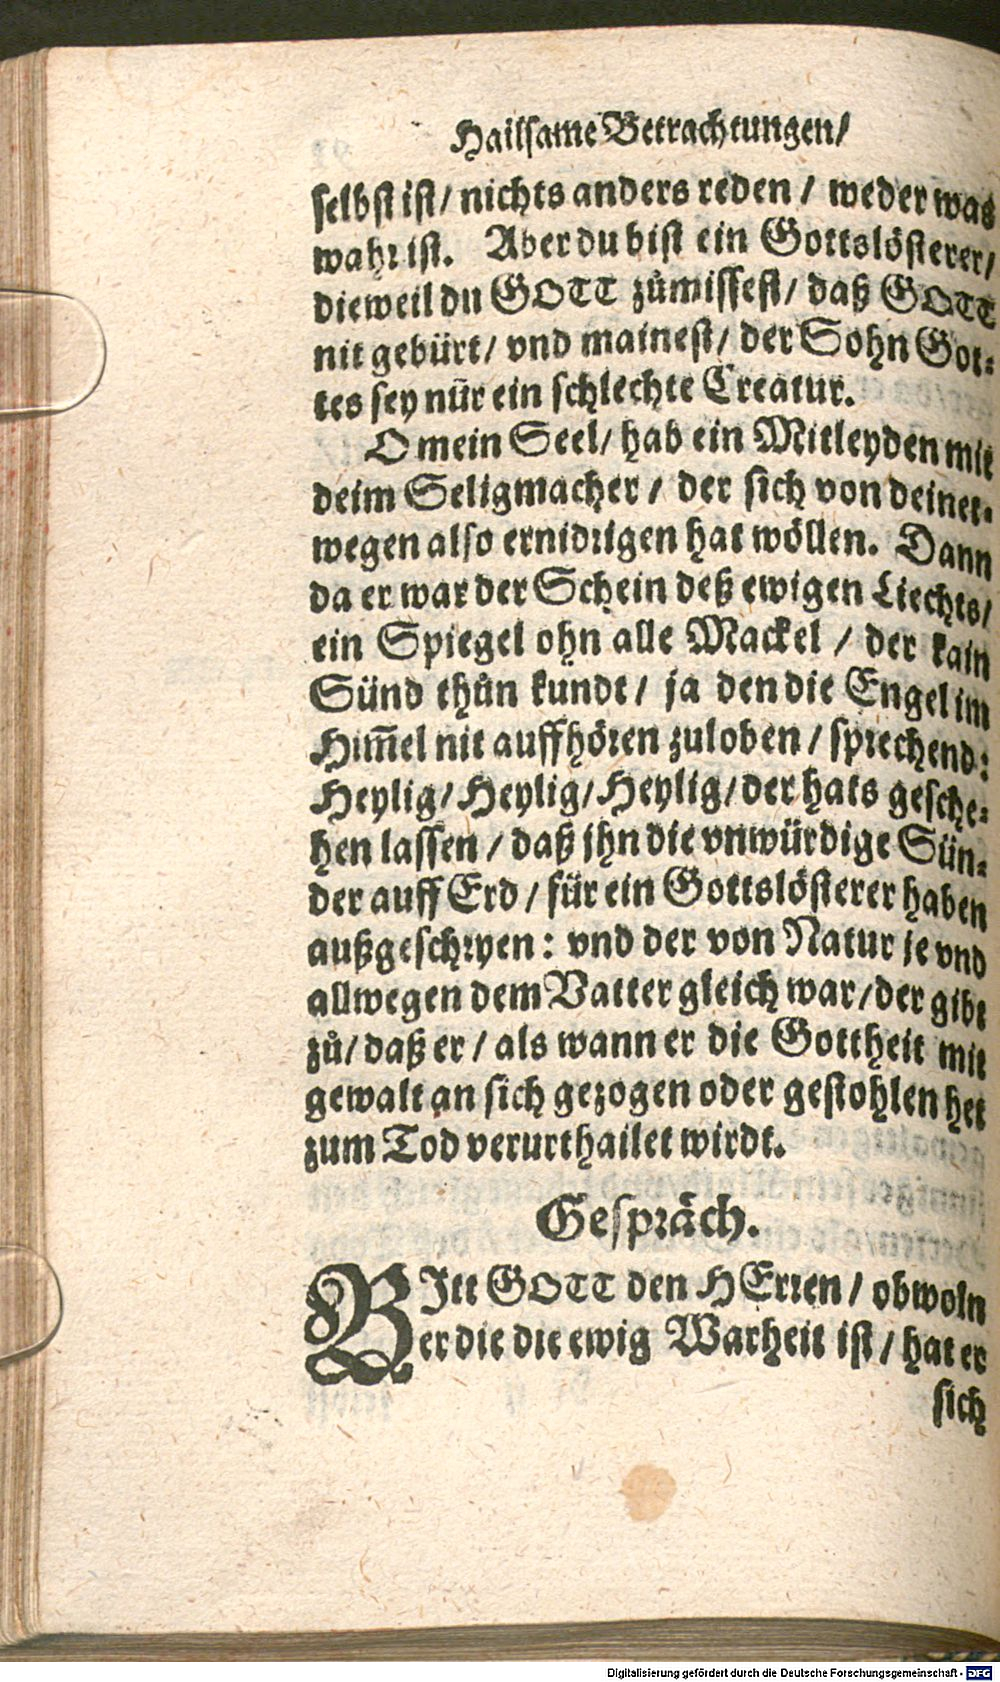 Hailsame Betrachtungen/
selbst ist/ nichts anders reden / weder was
wahr ist. Aber du bist ein Gottslösterer/
dieweil du GOTT zůmissest/ daß GOTT
nit gebürt/ vnd mainest/ der Sohn Got-
tes sey nůr ein schlechte Creatur.
O mein Seel/ hab ein Mitleyden mit
deim Seligmacher / der sich von deinet-
wegen also ernidrigen hat wöllen. Dann
da er war der Schein deß ewigen Liechts/
ein Spiegel ohn alle Mackel / der kain
Sünd thůn kundt/ ja den die Engel im
Him̃el nit auffhören zuloben / sprechend:
Heylig/ Heylig/ Heylig/ der hats gesche-
hen lassen / daß jhn die vnwürdige Sün-
der auff Erd / für ein Gottslösterer haben
außgeschryen: vnd der von Natur je vnd
allwegen dem Vatter gleich war/ der gibt
zů/ daß er / als wann er die Gottheit mit
gewalt an sich gezogen oder gestohlen het
zum Tod verurthailet wirdt.
Gespräch.
BItt GOTT den HErren / obwoln
er die die ewig Warheit ist / hat er
sich
Digitalisierung gefördert durch die Deutsche Forschungsgemeinschaft - DFG